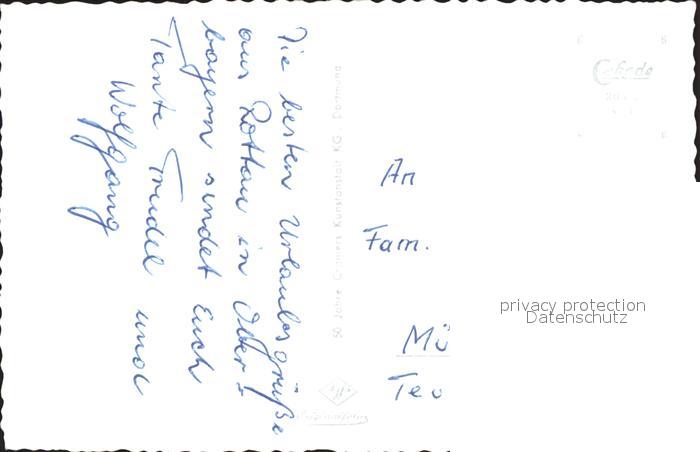 Die besten Urlaubsgrüße
aus Rottau in Ober-
bayern sendet Euch
Tante Trudel und
Wolfgang
50 Jahre Cramers Kunstanstalt KG Dortmund
An
Fam.
Mü
Teu
privacy protection
Datenschutz